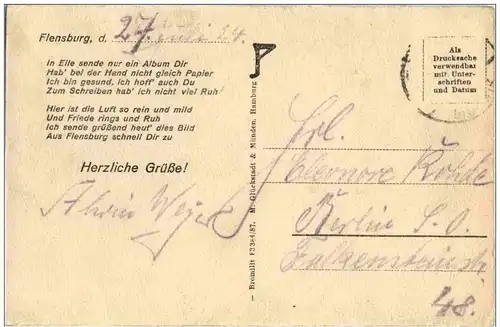 Flensburg, d. 27. Juli 24.
In Eile sende nur ein Album Dir
Hab' bei der Hand nicht gleich Papier
Ich bin gesund, ich hoff' auch Du
Zum Schreiben hab' ich nicht viel Ruh
Hier ist die Luft so rein und mild
Und Friede rings und Ruh
Ich sende grüßend heut' dies Bild
Aus Flensburg schnell Dir zu
Herzliche Grüße!
— Bromilit F3384/87. M. Glückstadt & Münden, Hamburg
Als
Drucksache
verwendbar
mit Unter-
schriften
und Datum
Frl.
Eleonore Rohde
Berlin S. O.
Falkensteinstr
48.